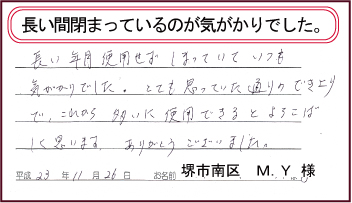 長い間閉まっているのが気がかりでした。
長い年月使用せずしまっていていつも
気がかりでした。とても思っていた通りのできより
で、これから多いに使用できるとよろこば
しく思います。ありがとうございました。
平成 23 年 11 月 26 日 お名前 堺市南区 M.Y 様